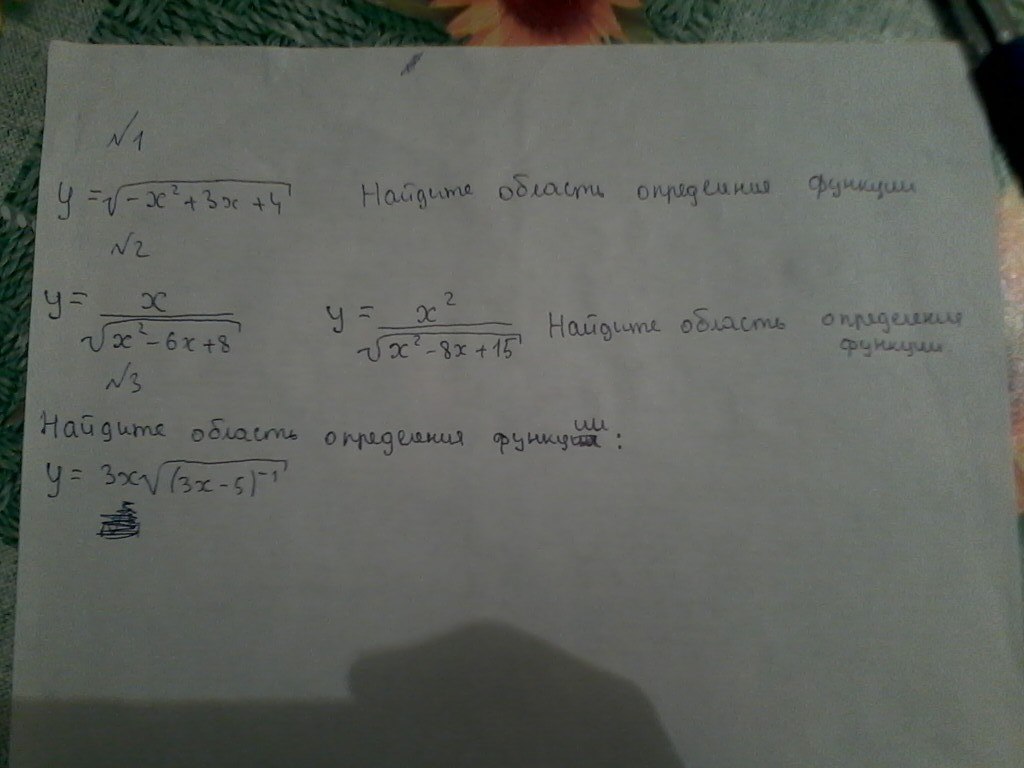 √1
y = √(-x² + 3x + 4) Найдите область определния функции
√2
y = x / √(x² - 6x + 8) y = x² / √(x² - 8x + 15) Найдите область определения
функции
√3
Найдите область определения функции:
y = 3x√((3x - 5)⁻¹)